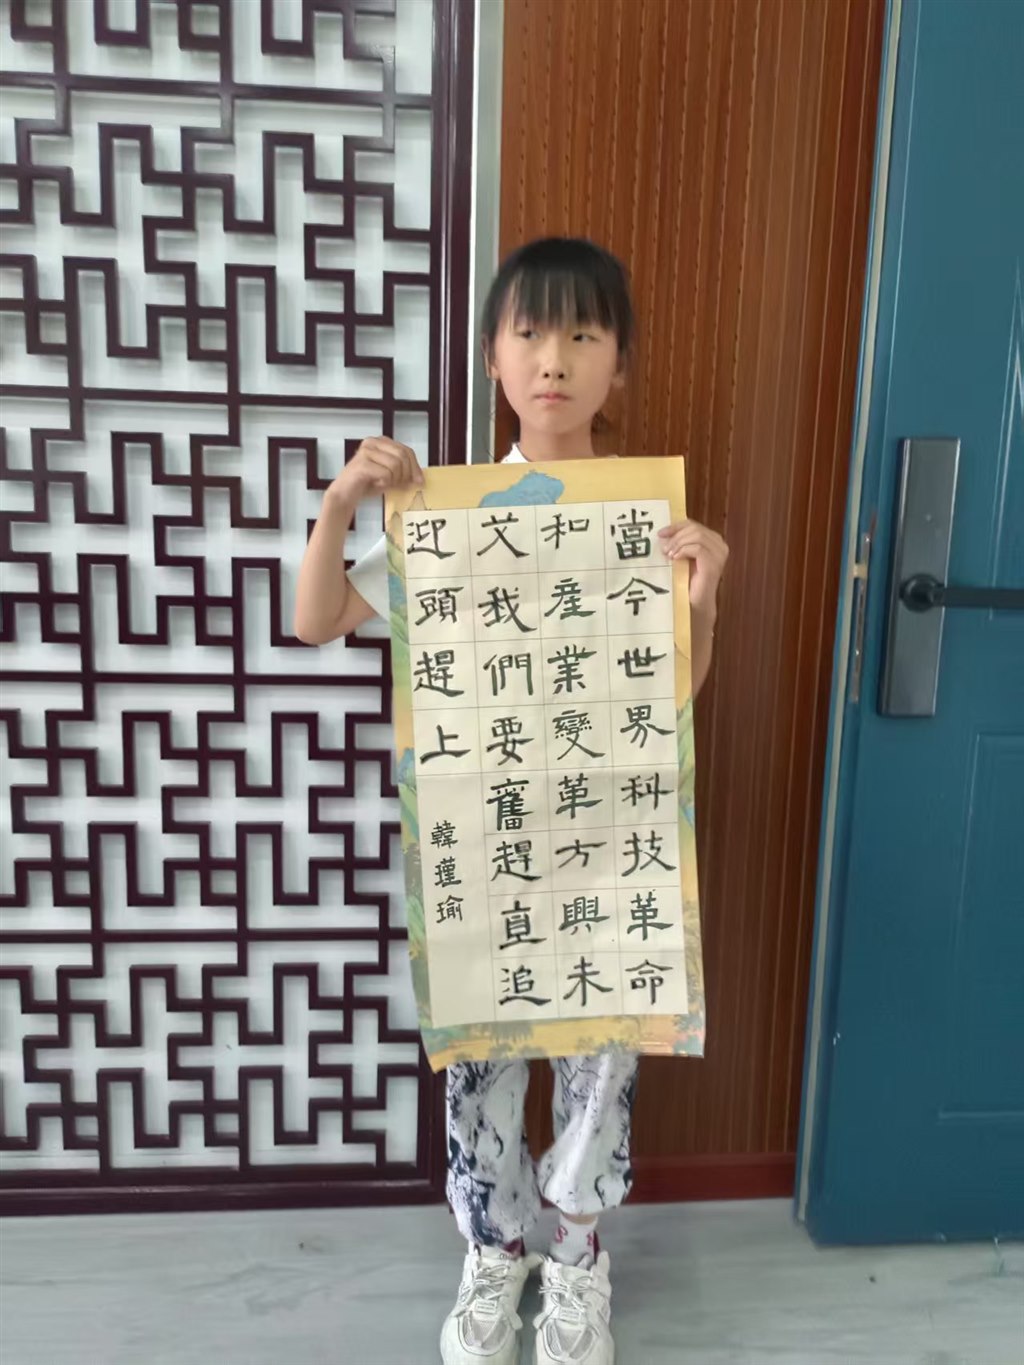 當今世界科技革命
和産業變革方興未
艾我們要奮趕直追
迎頭趕上
韓瑾瑜